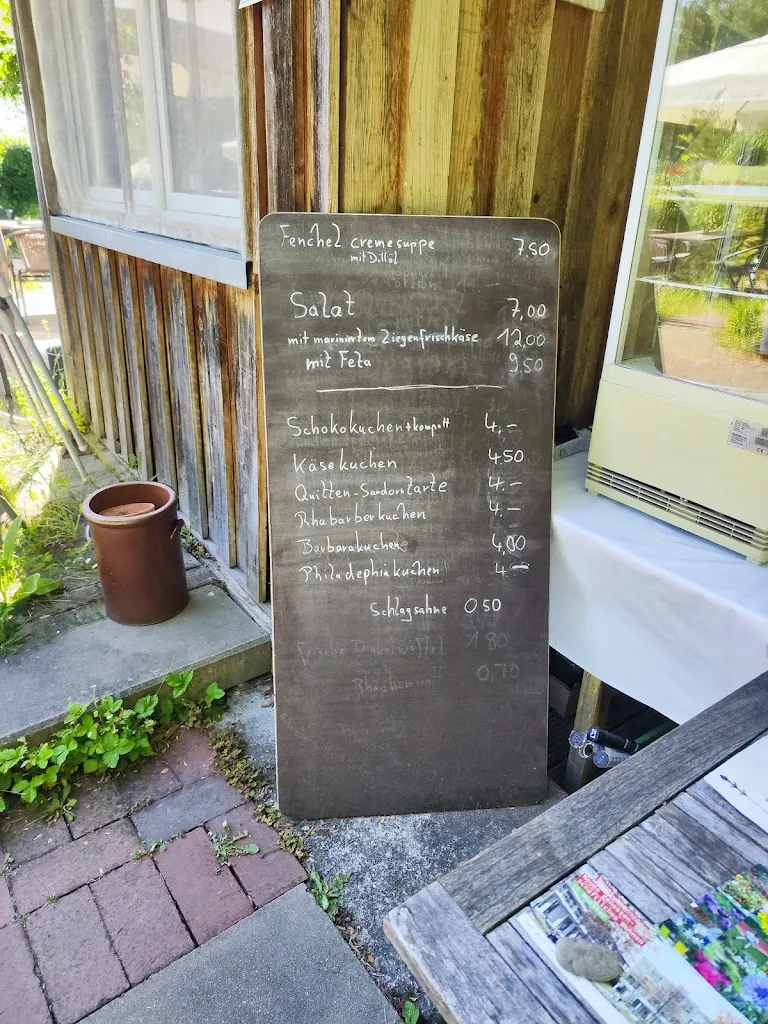 Fenchel cremesuppe 7.50
mit Dillöl
Salat 7,00
mit mariniertem Ziegenfrischkäse 12,00
mit Feta 9,50
Schokokuchen + kompott 4,-
Käsekuchen 4.50
Quitten-Sanddorntarte 4.-
Rhabarberkuchen 4.-
Barbarakuchen 4,00
Philadephiakuchen 4.-
Schlagsahne 0,50
frische Dinkelwaffel 1 80
0,70